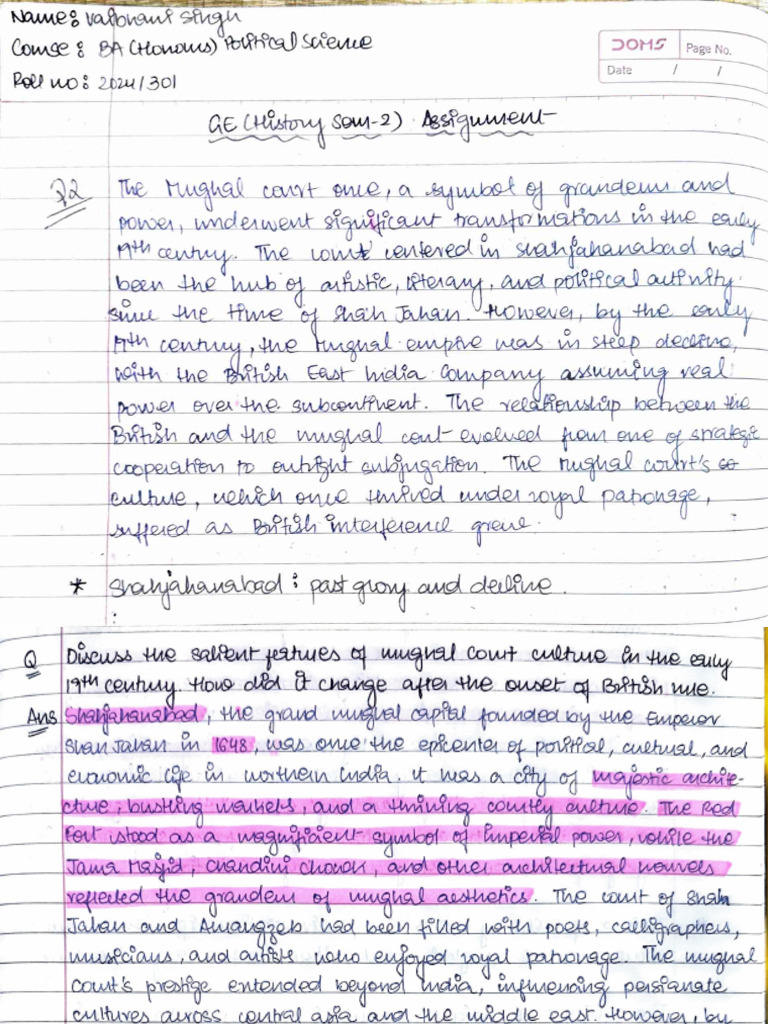 Name: Vaibhavi Singh
Course: BA (Honours) Political Science
Roll no: 2024/301
DOMS Page No.
Date / /
GE (History Sem-2) Assignment
Q2 The Mughal court once, a symbol of grandeur and
power, underwent significant transformations in the early
19th century. The court centered in Shahjahanabad had
been the hub of artistic, literary, and political activity
since the time of Shah Jahan. However, by the early
19th century, the Mughal empire was in steep decline,
with the British East India Company assuming real
power over the subcontinent. The relationship between the
British and the mughal court evolved from one of strategic
cooperation to outright subjugation. The Mughal court's
culture, which once thrived under royal patronage,
suffered as British interference grew.
* Shahjahanabad: past glory and decline.
:
Q Discuss the salient features of mughal court culture in the early
19th century. How did it change after the onset of British rule.
Ans Shahjahanabad, the grand mughal capital founded by the Emperor
Shah Jahan in 1648, was once the epicenter of political, cultural, and
economic life in northern India. It was a city of majestic archite-
cture, bustling markets, and a thriving courtly culture. The Red
Fort stood as a magnificient symbol of imperial power, while the
Jama Masjid, Chandini Chowk, and other architectural marvels
reflected the grandeur of mughal aesthetics. The court of Shah
Jahan and Aurangzeb had been filled with poets, calligraphers,
musicians, and artists who enjoyed royal patronage. The mughal
court's prestige extended beyond India, influencing persianate
cultures across central asia and the middle east. However, by